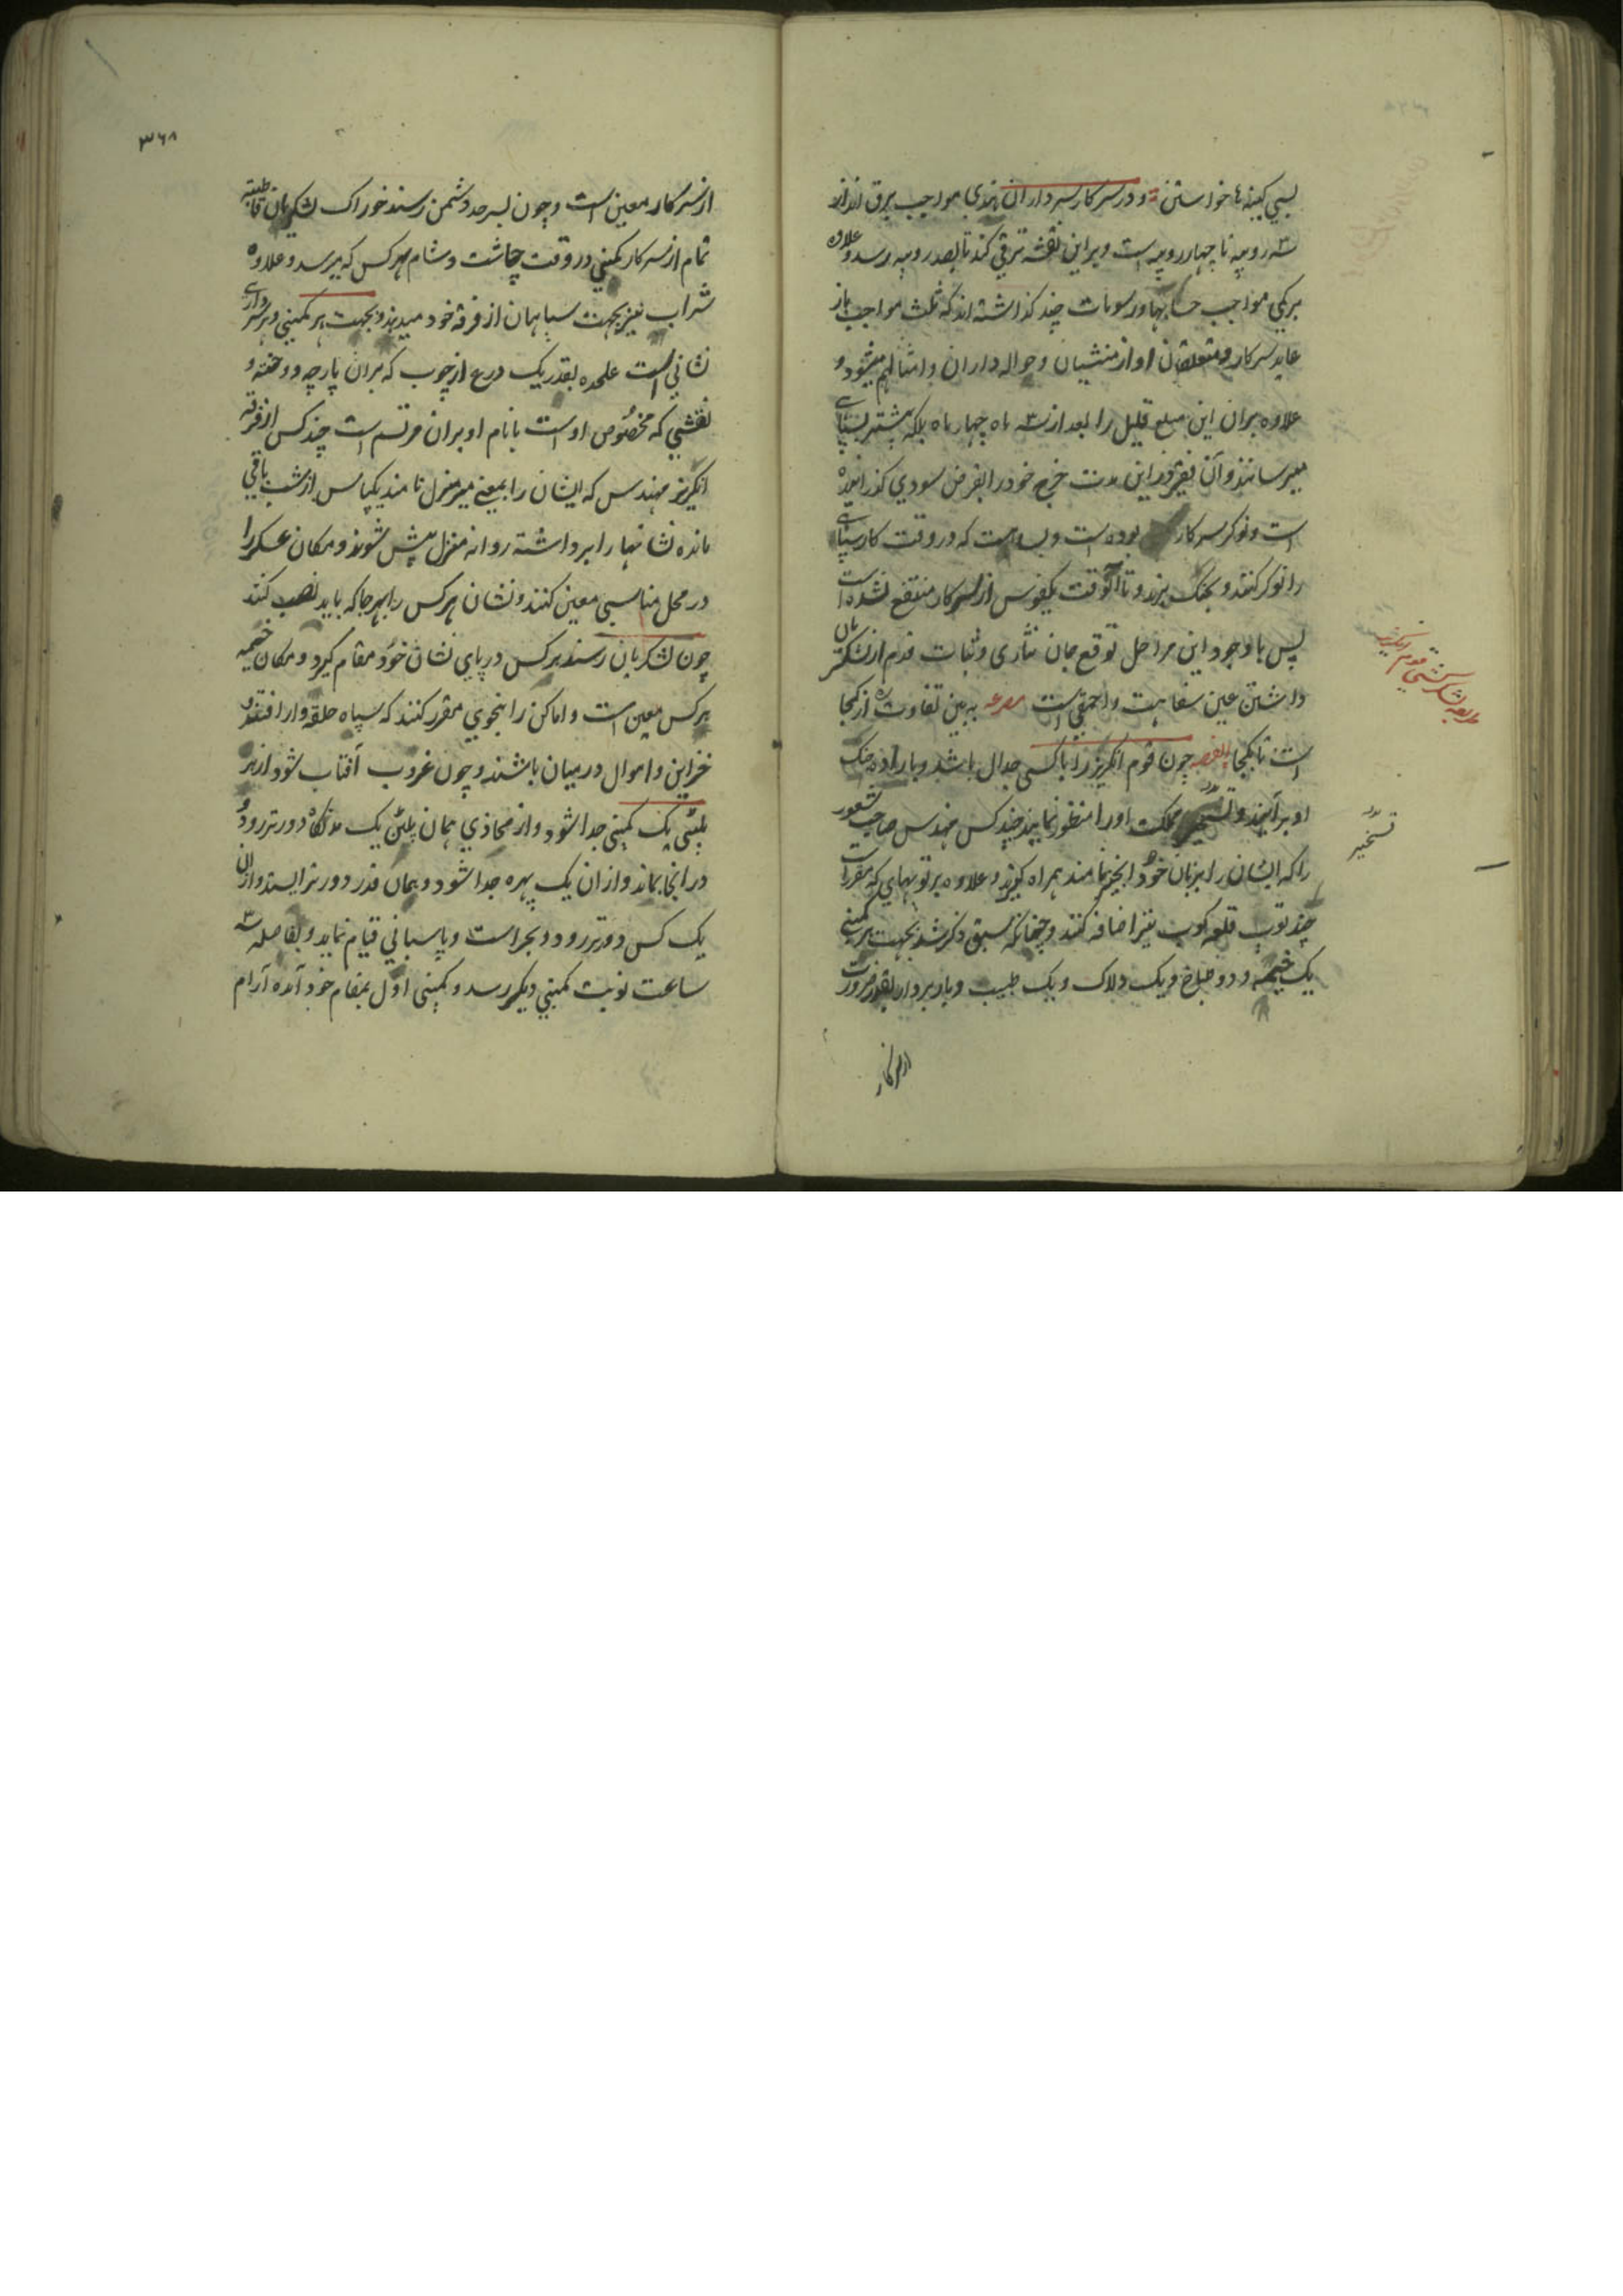 بسی کینه‌ها خواستن و در سرکار سرداران هندی مواجب برق انداز
سه روپیه تا چهار روپیه است و بر این نقشه ترقی کند تا بصد روپیه رسد و علاوه
بر کمی مواجب حسابها و رسومات چند گذاشته اند که ثلث مواجب باز
عاید سرکار و متعلقان او از منشیان و حواله داران و امثالهم میشود و
علاوه بران این مبلغ قلیل را بعد از سه ماه چهار ماه بلکه بیشتر بسپاهی
میرسانند و آن فقیر در این مدت خرج خود را بقرض سودی گذرانیده
است و نوکر سرکار بوده است و بسا هست که در وقت کار سپاهی
را نوکر کنند و بجنگ برند و تا آنوقت یکفوس از سرکار منتفع نشده است
پس با وجود این مراحل توقع جان نثاری و ثبات قدم از لشکریان
داشتن عین سفاهت و احمقی است مصرعه به بین تفاوت ره از کجا
است تا بکجا القصه چون قوم انگریز را با کسی جدال باشد و باراده جنک
او برآیند و تسخیر مملکت او را منظور نمایند چند کس مهندس صاحب شعور
را که ایشان را بزبان خود انجیر نامند همراه گیرند و علاوه بر توپهای که مقرر است
چند توپ قلعه کوب نیز اضافه کنند و چنانکه سبق ذکر شد بجهت هر کمپنی
یک خیمه و دو طباخ و یک دلاک و یک طبیب و باربردار بقدر ضرورت
از سرکار
طریقه لشکر کشی قوم انگریز
تسخیر
۳۶۸
از سرکار معین است و چون بسرحد دشمن رسند خوراک لشکریان قاطبة
تمام از سرکار کمپنی در وقت چاشت و شام بهر کس که میرسد و علاوه
شراب نیز بجهت سپاهیان از فرقه خود میدهند و بجهت هر کمپنی و هر سرداری
نشانی است علحده بقدر یک درع از چوب که بران پارچه دوخته و
نقشی که مخصوص او است با نام او بران مرتسم است چند کس از فرقه
انگریز مهندس که ایشان را بمعنی میر منزل نامند یکپاس از شب باقی
مانده نشانها را برداشته روانه منزل پیش شوند و مکان عسکر را
در محل مناسبی معین کنند و نشان هر کس را بهر جا که باید نصب کنند
چون لشکریان رسند هر کس در پای نشان خود مقام گیرد و مکان خیمه
هر کس معین است و اماکن را بنحوی مقرر کنند که سپاه حلقه وار افتند و
خزاین و اموال در میان باشند و چون غروب آفتاب شود از هر
پلتنی یک کمپنی جدا شود و از محاذی همان پلتن یک دورتر رود و
در انجا بماند و از ان یک پهره جدا شود و همان قدر دورتر ایستد و از ان
یک کس دورتر رود و بحراست و پاسبانی قیام نماید و بفاصله سه
ساعت نوبت کمپنی دیگر رسد و کمپنی اول بمقام خود آمده آرام